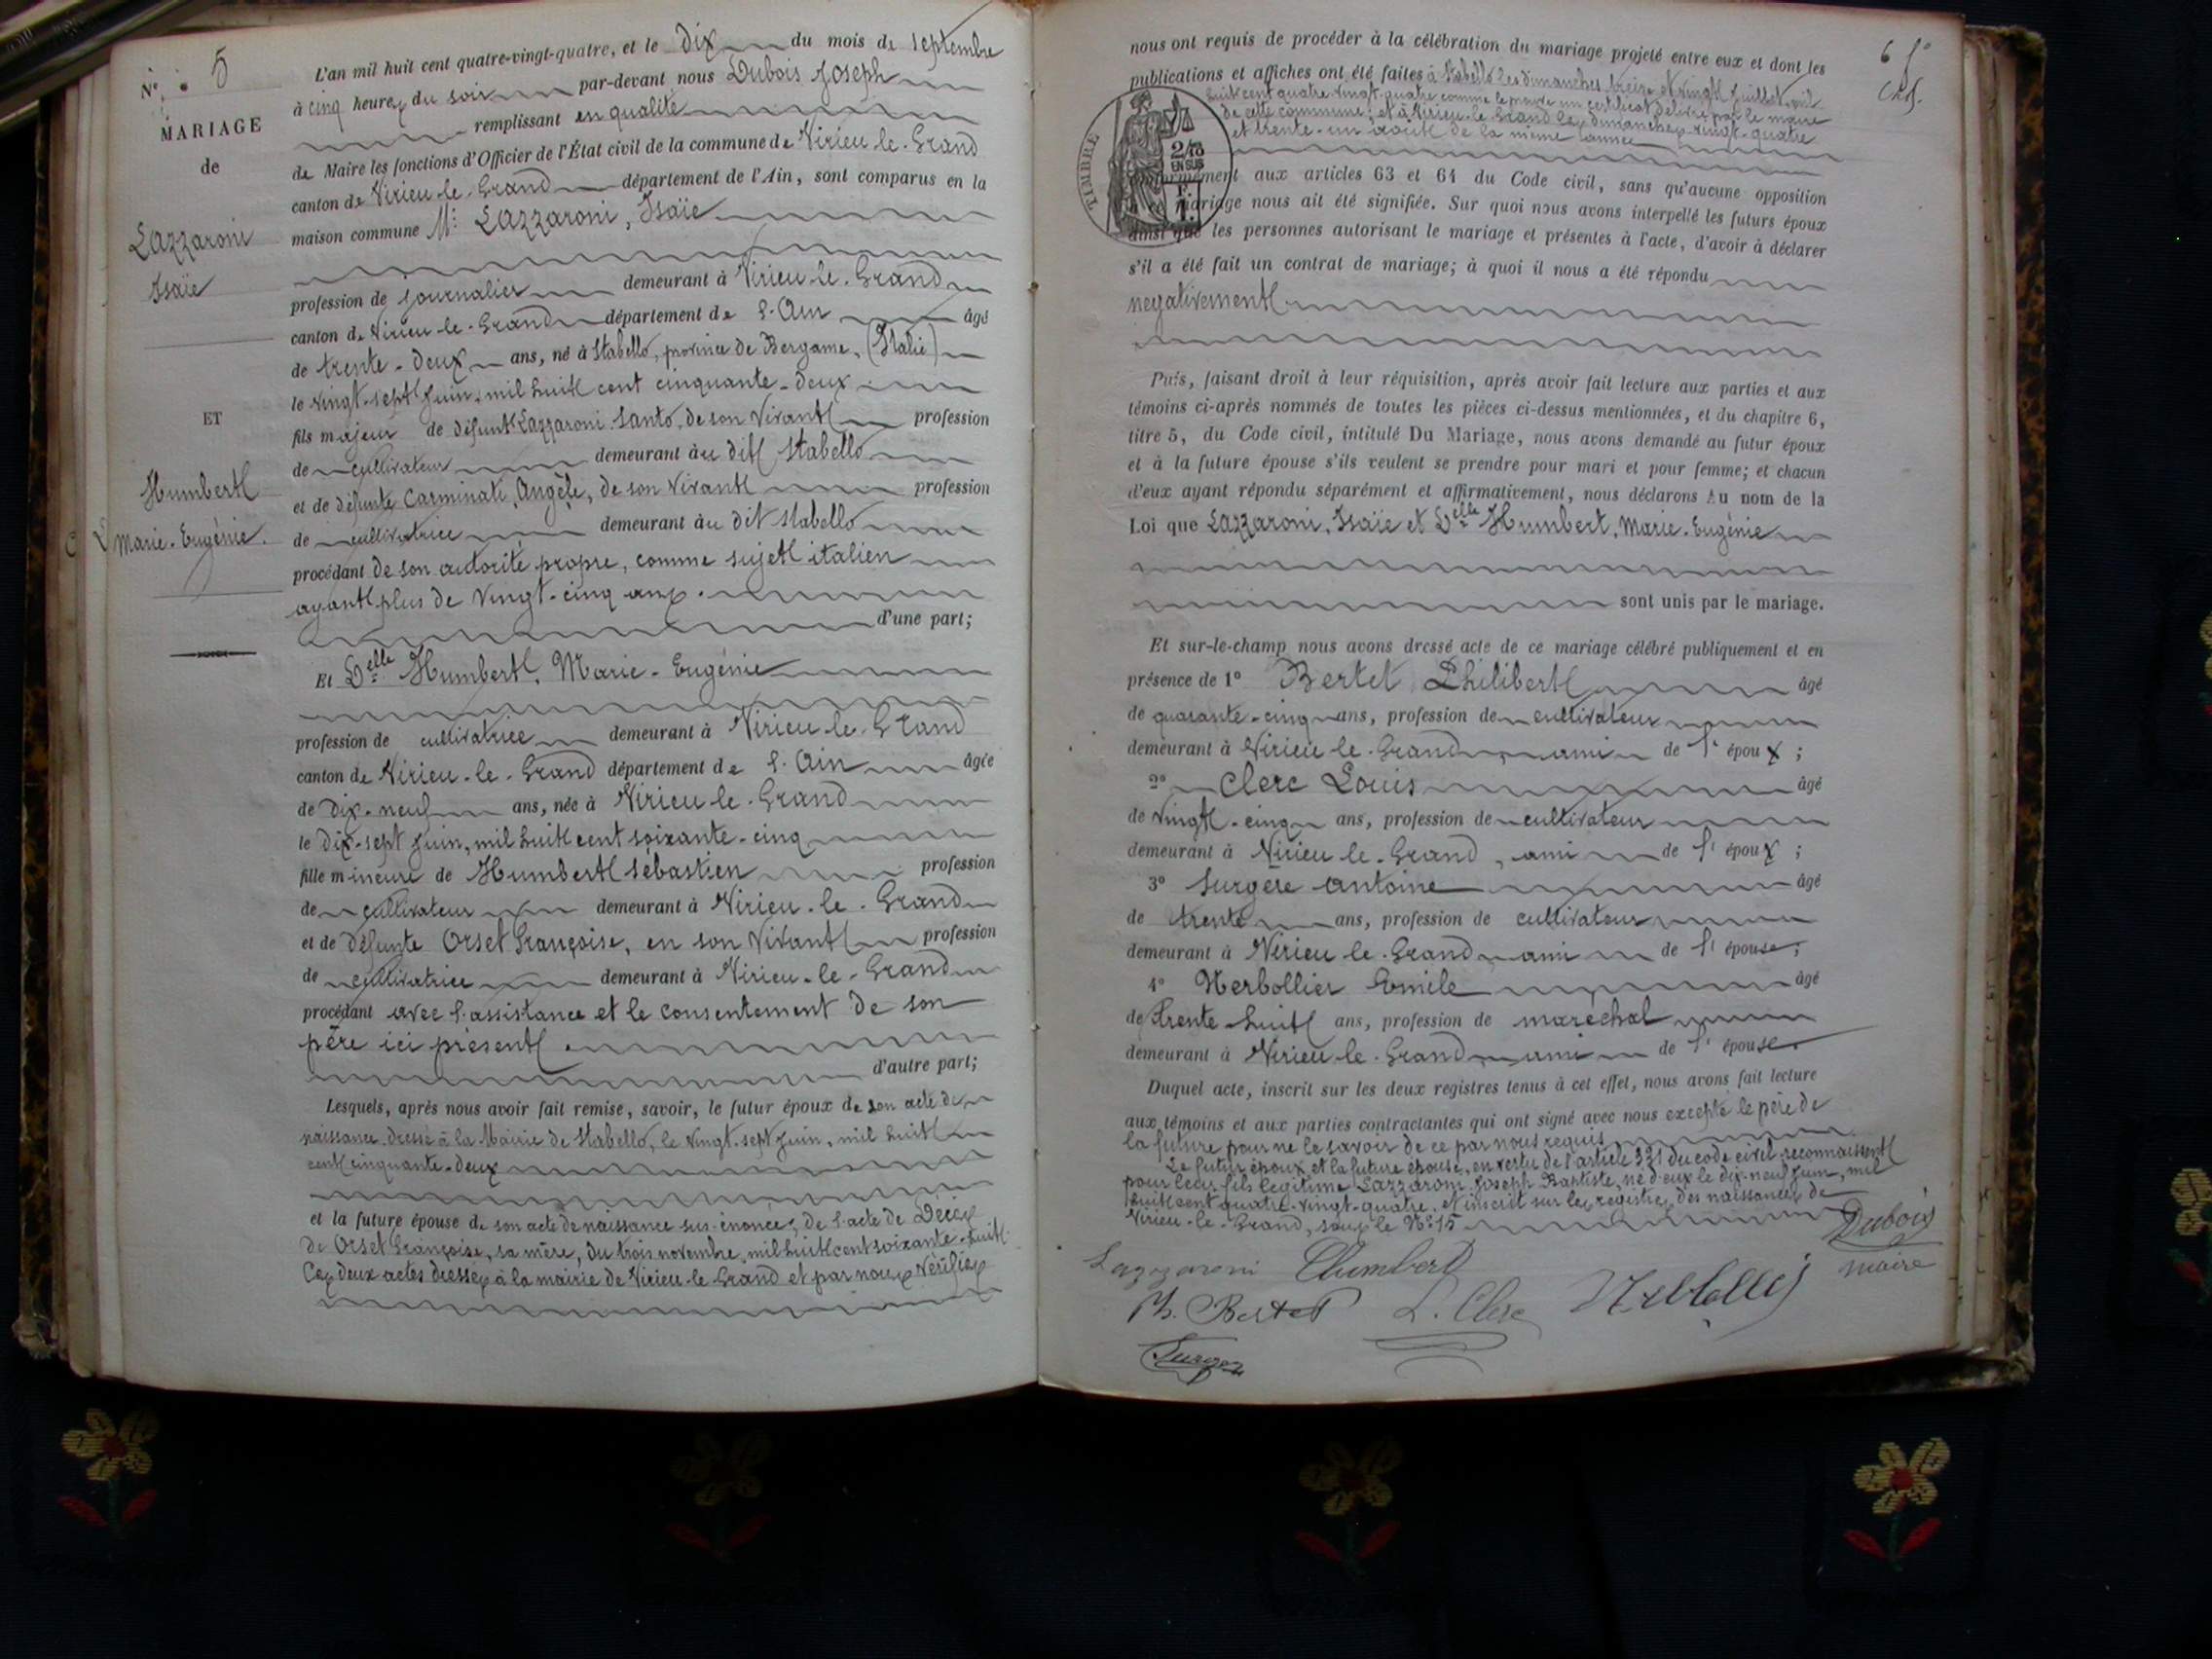 N° 5
MARIAGE
de
Lazzaroni
Isaïe
ET
Humbert
Marie-Eugénie.
L'an mil huit cent quatre-vingt-quatre, et le dix du mois de septembre
à cinq heures du soir par-devant nous Dubois Joseph
remplissant en qualité
de Maire les fonctions d'Officier de l'État civil de la commune de Virieu-le-Grand
canton de Virieu-le-Grand département de l'Ain, sont comparus en la
maison commune Mr Lazzaroni, Isaïe
profession de journalier demeurant à Virieu-le-Grand
canton de Virieu-le-Grand département de l'Ain âgé
de trente-deux ans, né à Stabello, province de Bergame, (Italie)
le vingt-sept juin, mil huit cent cinquante-deux
fils majeur de défunt Lazzaroni Santo, de son vivant profession
de cultivateur demeurant au dit Stabello
et de défunte Carminati, Angèle, de son vivant profession
de cultivatrice demeurant au dit Stabello
procédant de son autorité propre, comme sujet italien
ayant plus de vingt-cinq ans.
d'une part;
Et Delle Humbert, Marie-Eugénie
profession de cultivatrice demeurant à Virieu-le-Grand
canton de Virieu-le-Grand département de l'Ain âgée
de dix-neuf ans, née à Virieu-le-Grand
le dix-sept juin, mil huit cent soixante-cinq
fille mineure de Humbert Sébastien profession
de cultivateur demeurant à Virieu-le-Grand
et de défunte Orset Françoise, en son vivant profession
de cultivatrice demeurant à Virieu-le-Grand
procédant avec l'assistance et le consentement de son
père ici présent.
d'autre part;
Lesquels, après nous avoir fait remise, savoir, le futur époux de son acte de
naissance dressé à la Mairie de Stabello, le vingt-sept juin, mil huit
cent cinquante-deux
et la future épouse de son acte de naissance sus-énoncé, de l'acte de décès
de Orset Françoise, sa mère, du trois novembre, mil huit cent soixante-huit.
Ces deux actes dressés à la mairie de Virieu-le-Grand et par nous vérifiés
6
nous ont requis de procéder à la célébration du mariage projeté entre eux et dont les
publications et affiches ont été faites à Stabello les dimanches treize et vingt juillet mil
huit cent quatre-vingt-quatre comme le prouve un certificat délivré par le maire
de cette commune; et à Virieu-le-Grand les dimanches vingt-quatre
et trente-un août de la même année
TIMBRE
EN SUS
conformément aux articles 63 et 64 du Code civil, sans qu'aucune opposition
à ce mariage nous ait été signifiée. Sur quoi nous avons interpellé les futurs époux
ainsi que les personnes autorisant le mariage et présentes à l'acte, d'avoir à déclarer
s'il a été fait un contrat de mariage; à quoi il nous a été répondu
négativement
Puis, faisant droit à leur réquisition, après avoir fait lecture aux parties et aux
témoins ci-après nommés de toutes les pièces ci-dessus mentionnées, et du chapitre 6,
titre 5, du Code civil, intitulé Du Mariage, nous avons demandé au futur époux
et à la future épouse s'ils veulent se prendre pour mari et pour femme; et chacun
d'eux ayant répondu séparément et affirmativement, nous déclarons Au nom de la
Loi que Lazzaroni, Isaïe et Delle Humbert, Marie-Eugénie
sont unis par le mariage.
Et sur-le-champ nous avons dressé acte de ce mariage célébré publiquement et en
présence de 1° Bertet Philibert âgé
de quarante-cinq ans, profession de cultivateur
demeurant à Virieu-le-Grand, ami de l'époux;
2° Clerc Louis âgé
de vingt-cinq ans, profession de cultivateur
demeurant à Virieu-le-Grand, ami de l'époux;
3° Surgère Antoine âgé
de trente ans, profession de cultivateur
demeurant à Virieu-le-Grand ami de l'épouse;
4° Verbollier Emile âgé
de trente-huit ans, profession de maréchal
demeurant à Virieu-le-Grand ami de l'épouse.
Duquel acte, inscrit sur les deux registres tenus à cet effet, nous avons fait lecture
aux témoins et aux parties contractantes qui ont signé avec nous excepté le père de
la future pour ne le savoir de ce par nous requis
Le futur époux et la future épouse, en vertu de l'article 331 du code civil reconnaissent
pour leur fils légitime Lazzaroni Joseph Baptiste, né d'eux le dix-neuf juin, mil
huit cent quatre-vingt-quatre, et inscrit sur les registres des naissances de
Virieu-le-Grand, sous le N° 15
Dubois
maire
Lazzaroni Humbert
Ph. Bertet L. Clerc